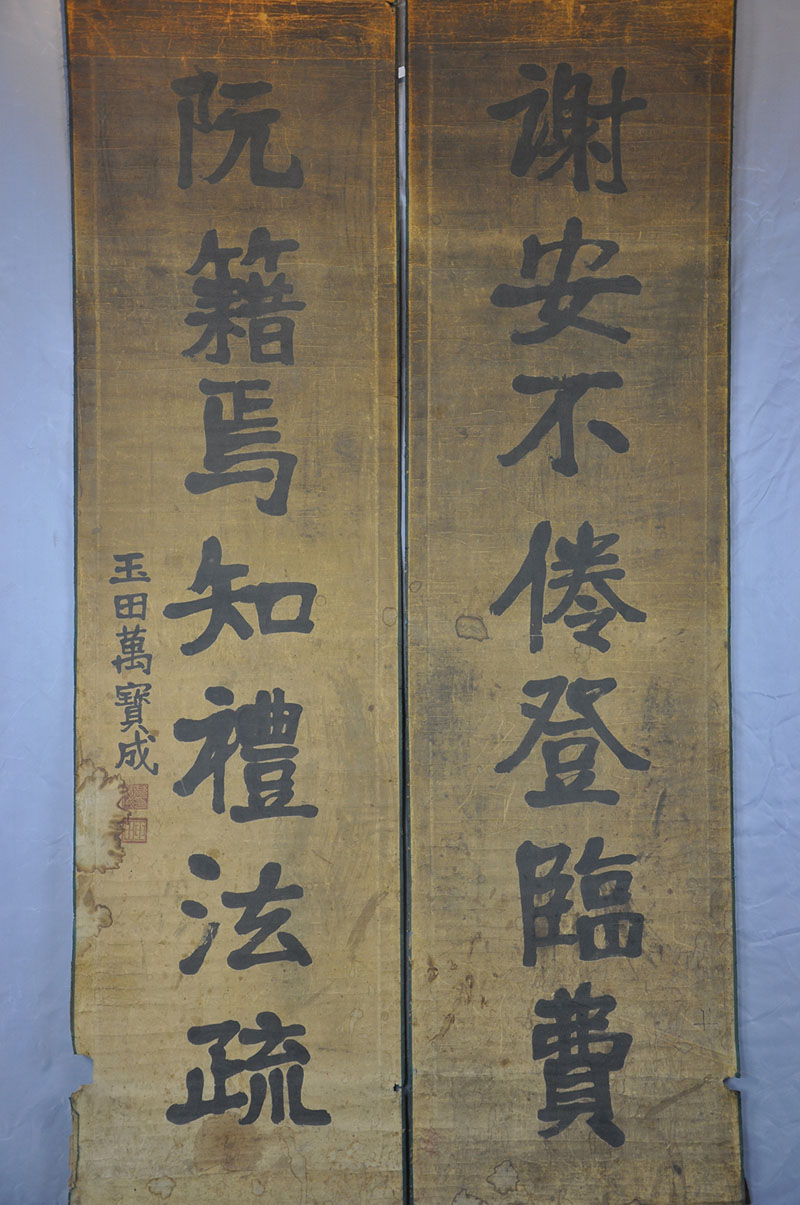 謝安不倦登臨費
阮籍焉知禮法疏
玉田萬寶成